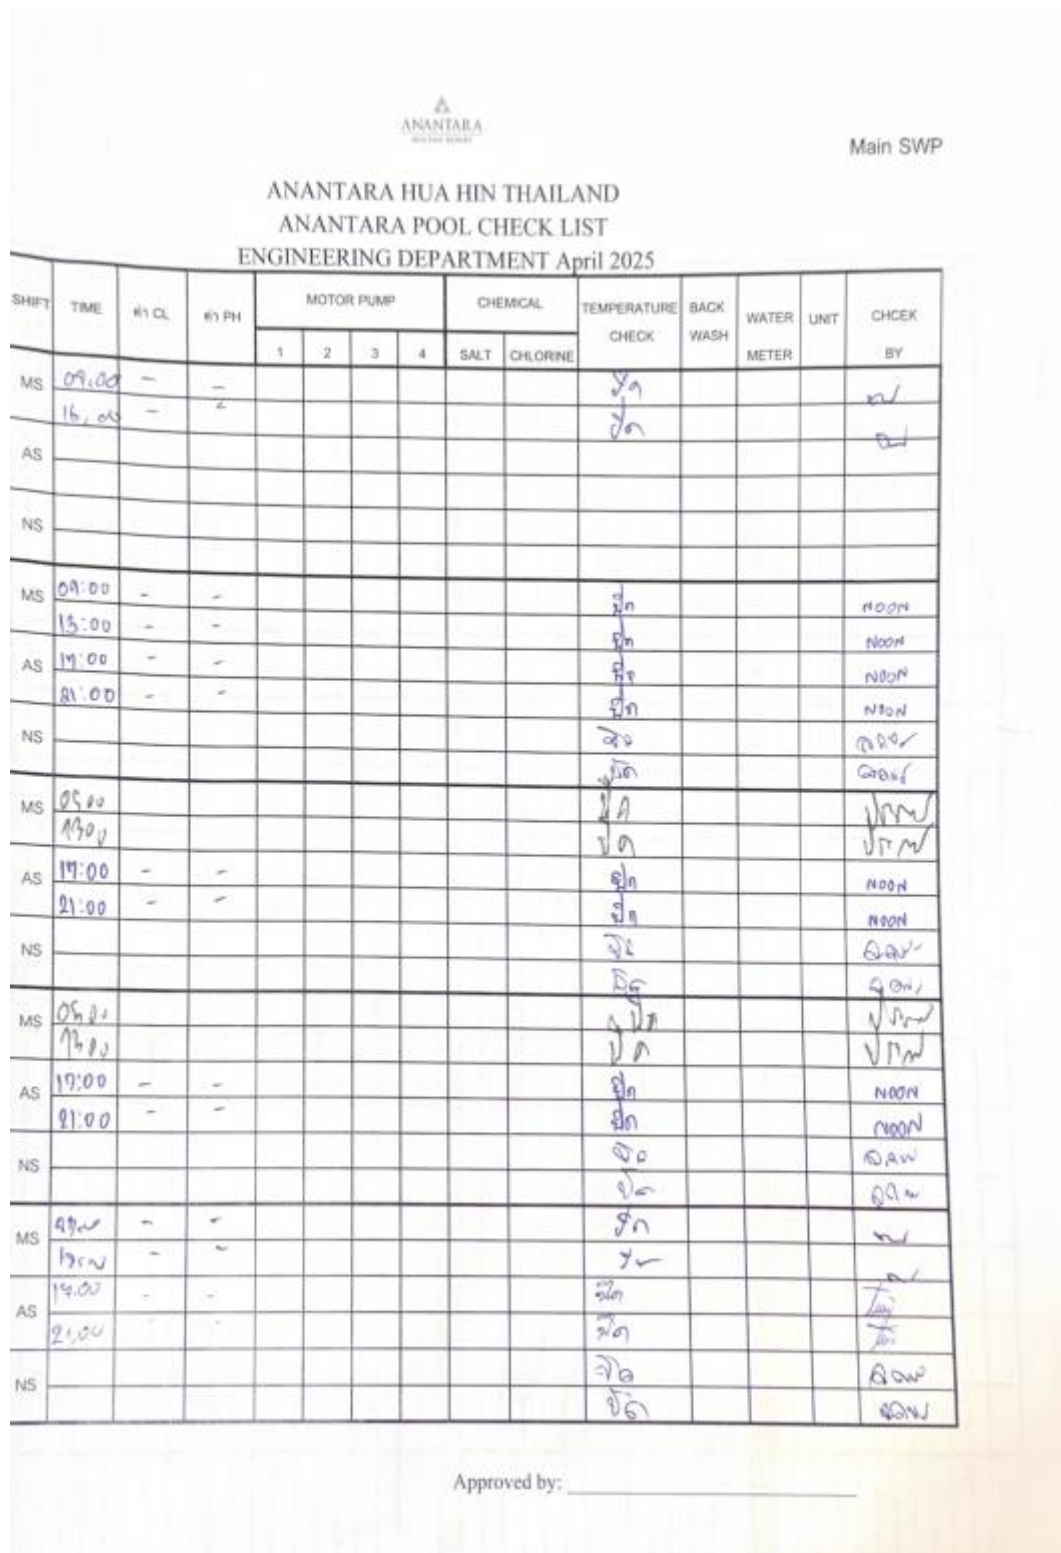 ANANTARA
Main SWP
ANANTARA HUA HIN THAILAND
ANANTARA POOL CHECK LIST
ENGINEERING DEPARTMENT April 2025
SHIFT TIME ค่า CL ค่า PH MOTOR PUMP CHEMICAL TEMPERATURE CHECK BACK WASH WATER METER UNIT CHCEK BY
1 2 3 4 SALT CHLORINE
MS 09.00 - - ปิด
16.00 - - ปิด
AS
NS
MS 09:00 - - ปิด NOON
13:00 - - ปิด NOON
AS 17:00 - - ปิด NOON
21:00 - - ปิด NOON
NS ปิด
ปิด
MS ปิด
1300 ปิด
AS 17:00 - - ปิด NOON
21:00 - - ปิด NOON
NS
MS ปิด
1300 ปิด
AS 17:00 - - ปิด NOON
21:00 - - ปิด NOON
NS ปิด
ปิด
MS - - ปิด
- -
AS 17.00 - - ปิด
21.00 - - ปิด
NS ปิด
ปิด
Approved by: